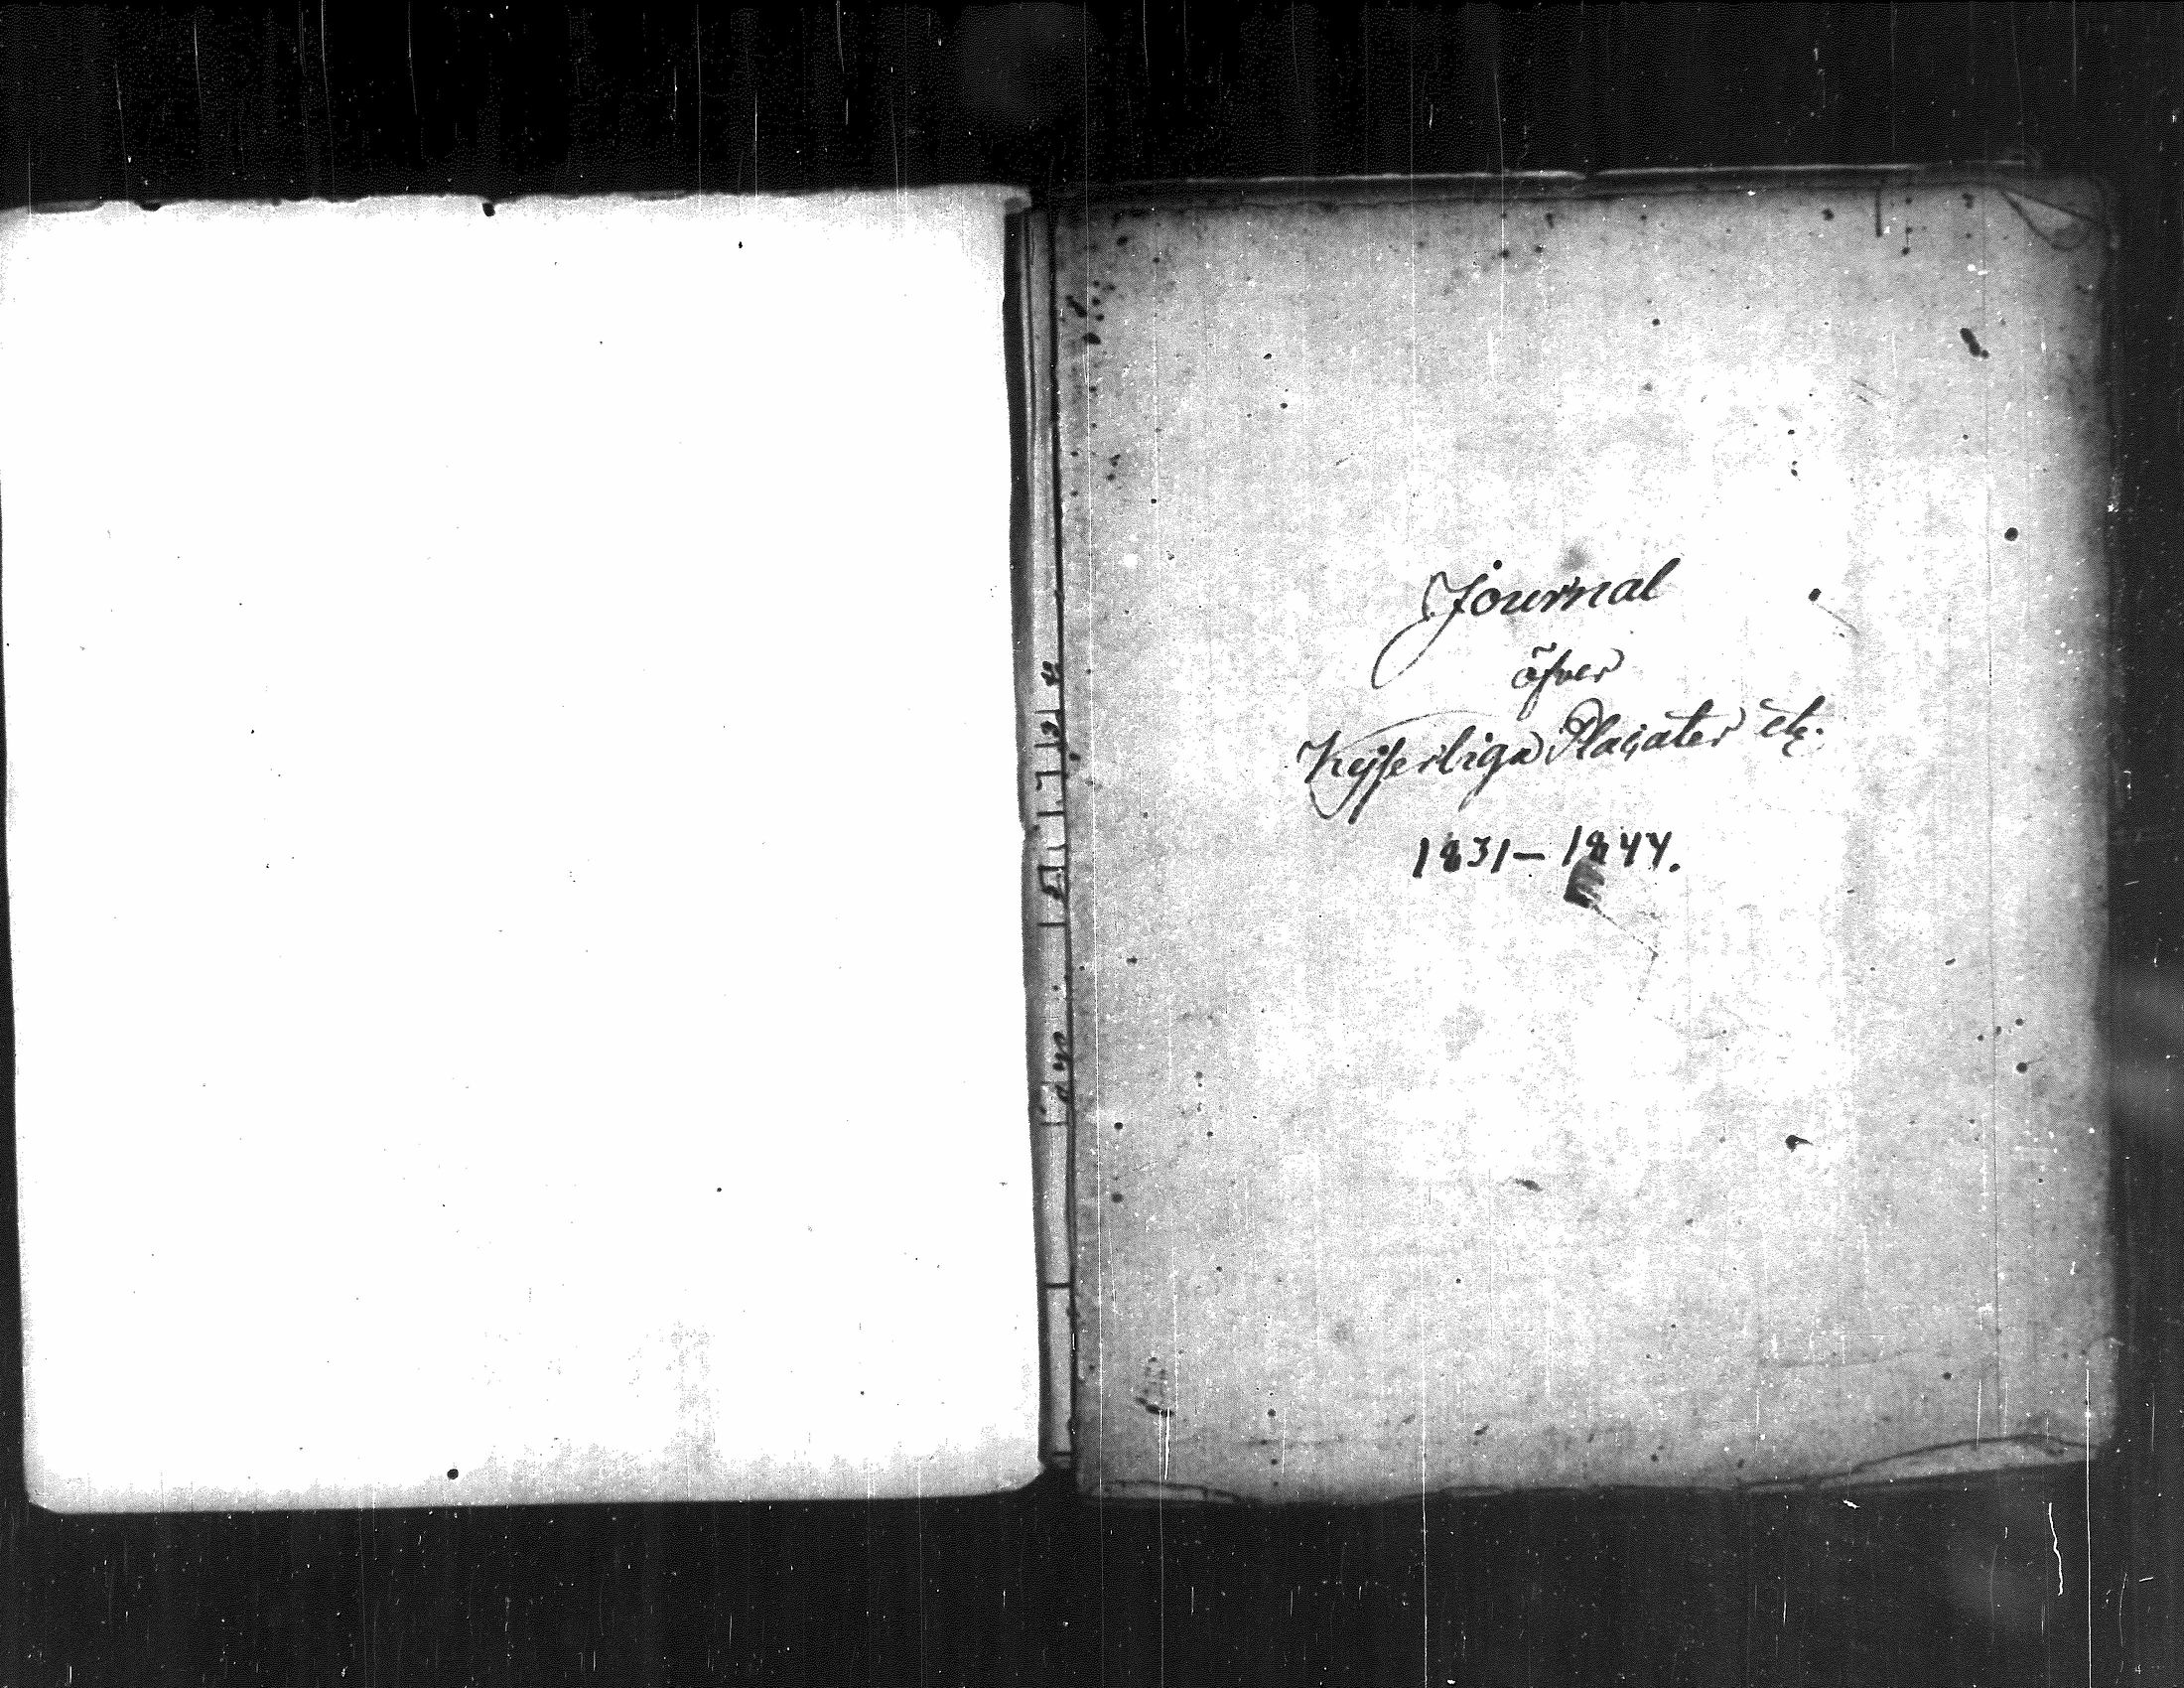 Journal
öfver
Kejserliga Placater etc.
1831–1844.